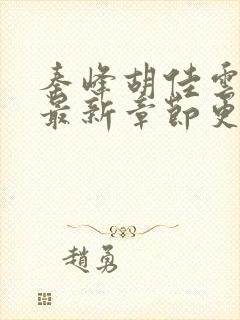 秦峰胡佳雲
最新章節更
趙勇